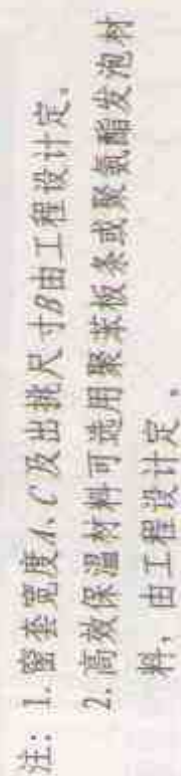 注: 1. 窗套宽度A、C及出挑尺寸B由工程设计定。
2. 高效保温材料可选用聚苯板条或聚氨酯发泡材
料, 由工程设计定。